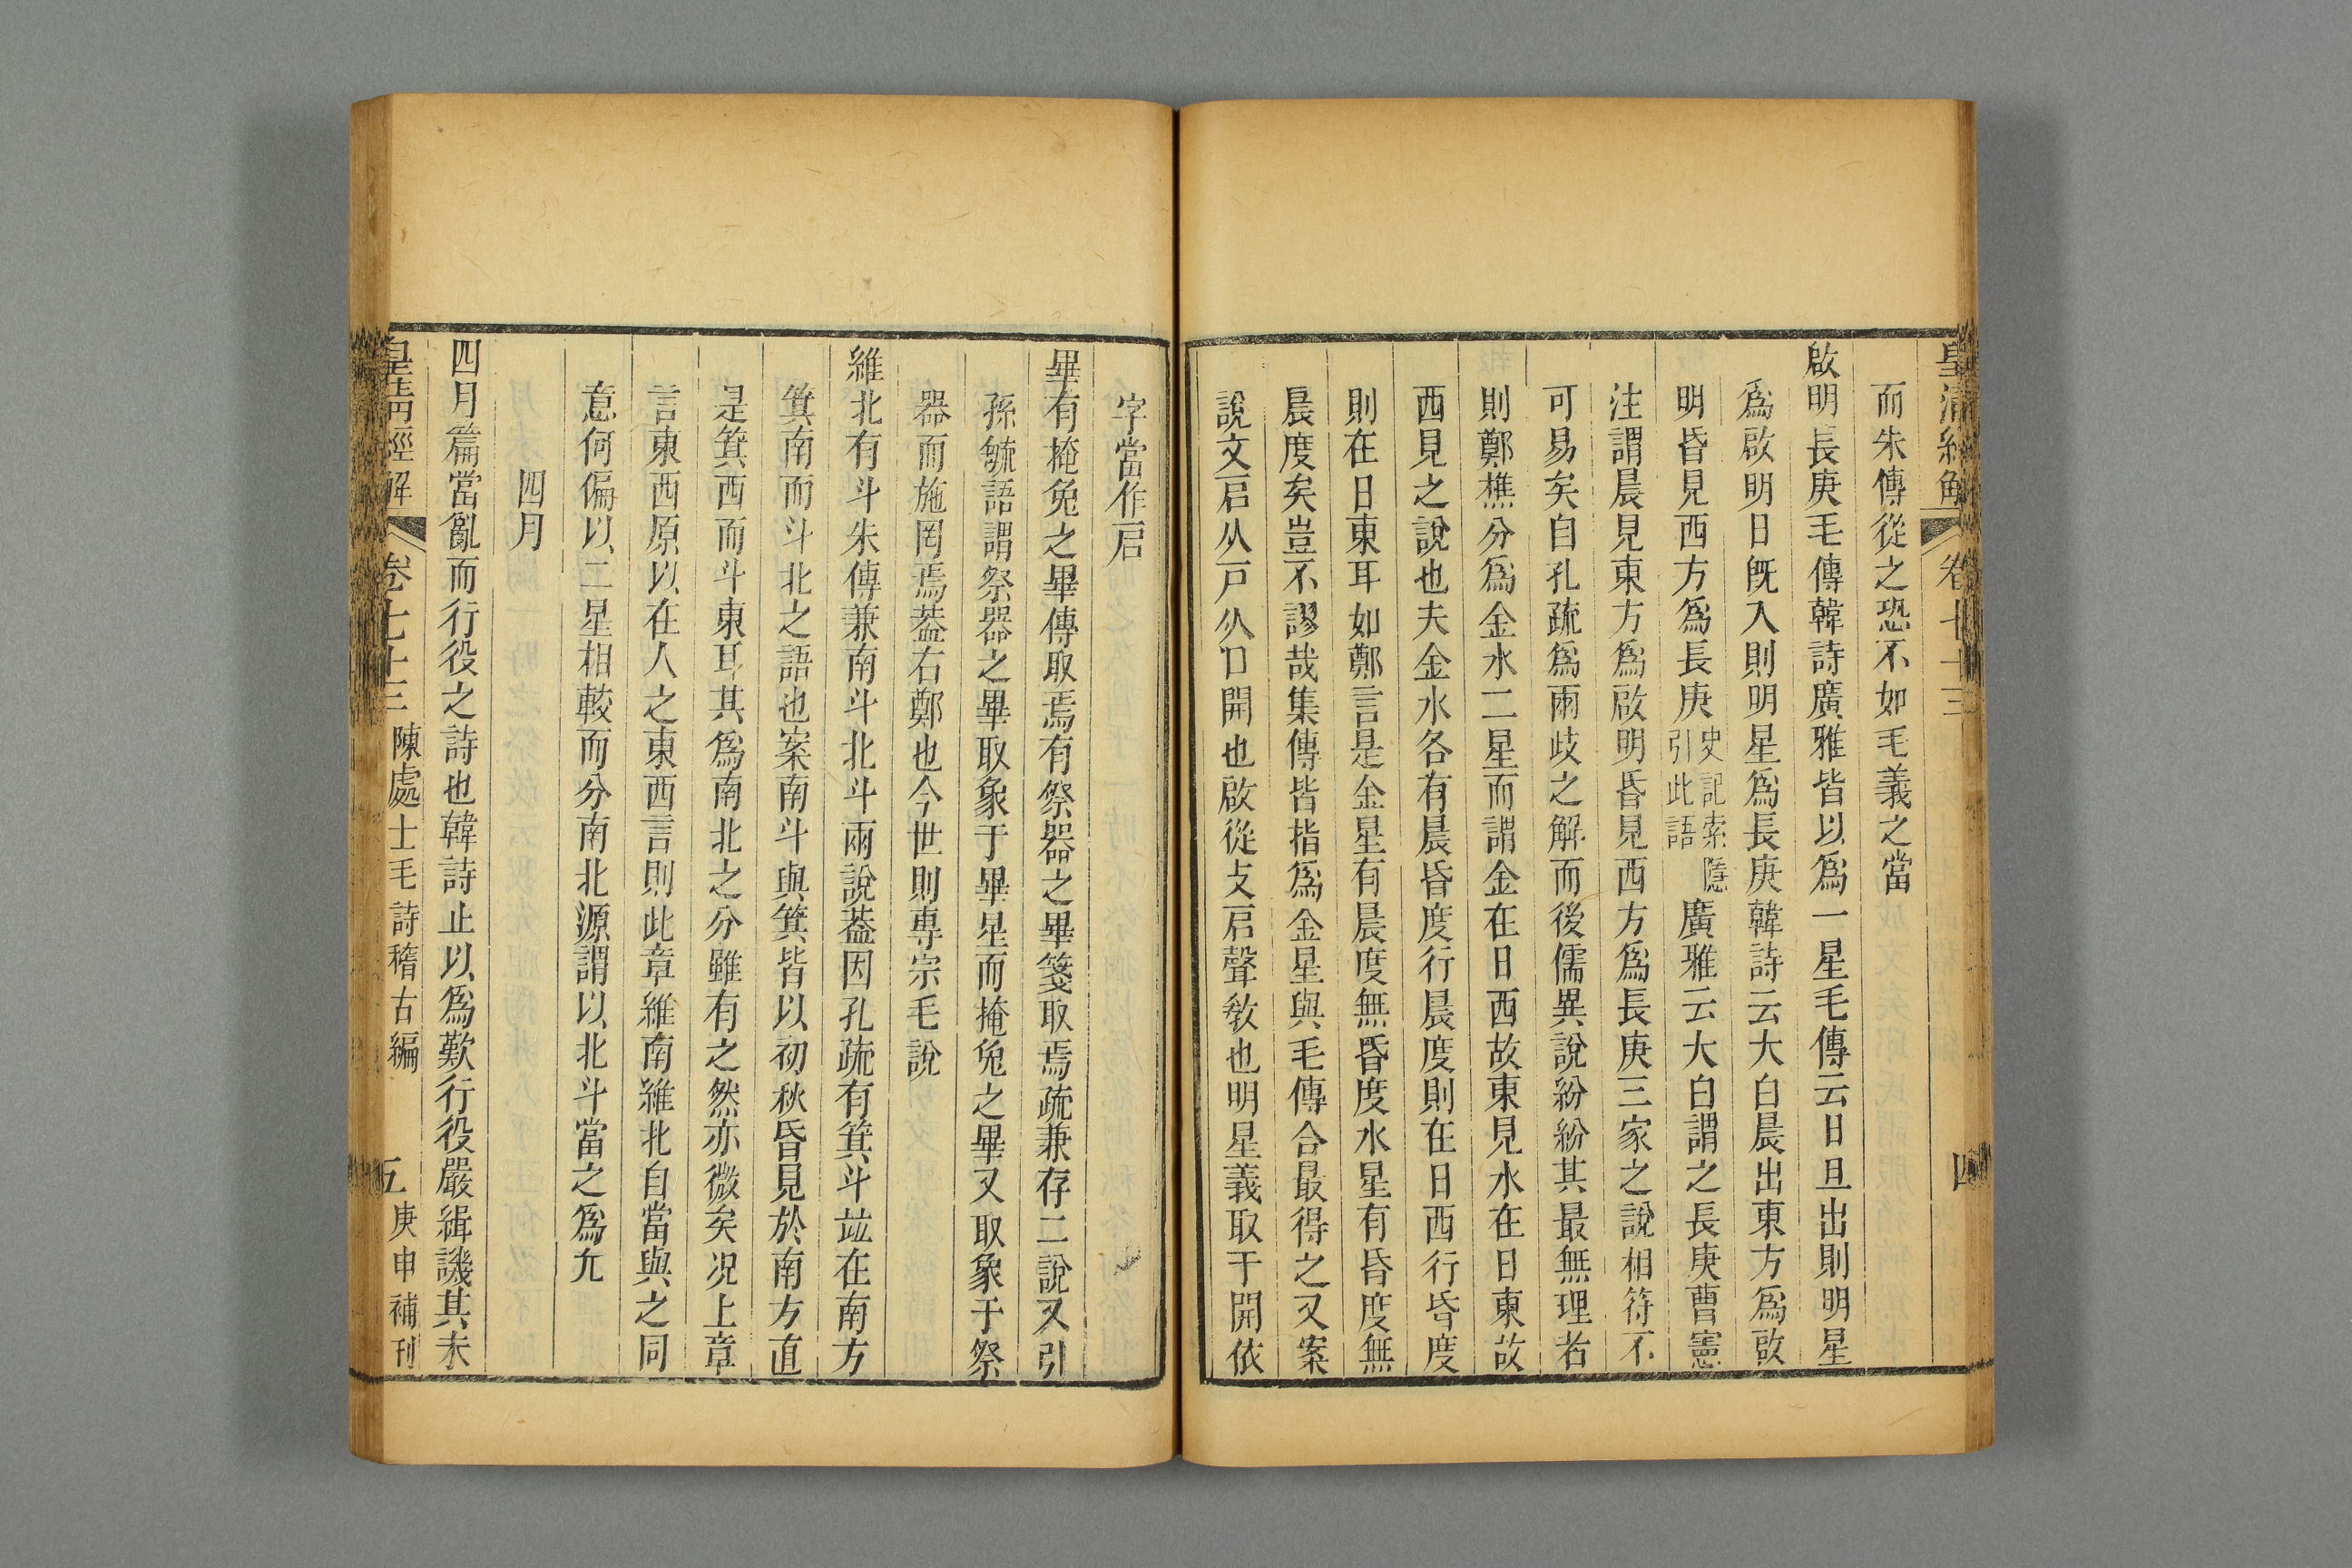 皇清經解
卷七十三
四
而朱傳從之恐不如毛義之當
啟明長庚毛傳韓詩廣雅皆以爲一星毛傳云日旦出則明星
爲啟明日旣入則明星爲長庚韓詩云大白晨出東方爲啟
明昏見西方爲長庚史記索隱引此語廣雅云大白謂之長庚曹憲
注謂晨見東方爲啟明昏見西方爲長庚三家之說相符不
可易矣自孔疏爲兩歧之解而後儒異說紛紛其最無理者
則鄭樵分爲金水二星而謂金在日西故東見水在日東故
西見之說也夫金水各有晨昏度行晨度則在日西行昏度
則在日東耳如鄭言是金星有晨度無昏度水星有昏度無
晨度矣豈不謬哉集傳皆指爲金星與毛傳合最得之又案
說文启从戸从口開也啟從攴启聲敎也明星義取于開依
字當作启
畢有掩兔之畢傳取焉有祭器之畢箋取焉疏兼存二說又引
孫毓語謂祭器之畢取象于畢星而掩兔之畢又取象于祭
器而施罔焉葢右鄭也今世則專宗毛說
維北有斗朱傳兼南斗北斗兩說葢因孔疏有箕斗竝在南方
箕南而斗北之語也案南斗與箕皆以初秋昏見於南方直
是箕西而斗東耳其爲南北之分雖有之然亦微矣况上章
言東西原以在人之東西言則此章維南維北自當與之同
意何偏以二星相較而分南北源謂以北斗當之爲允
四月
四月篇當亂而行役之詩也韓詩止以爲歎行役嚴緝譏其未
皇清經解
卷七十三
陳處士毛詩稽古編
五
庚申補刊